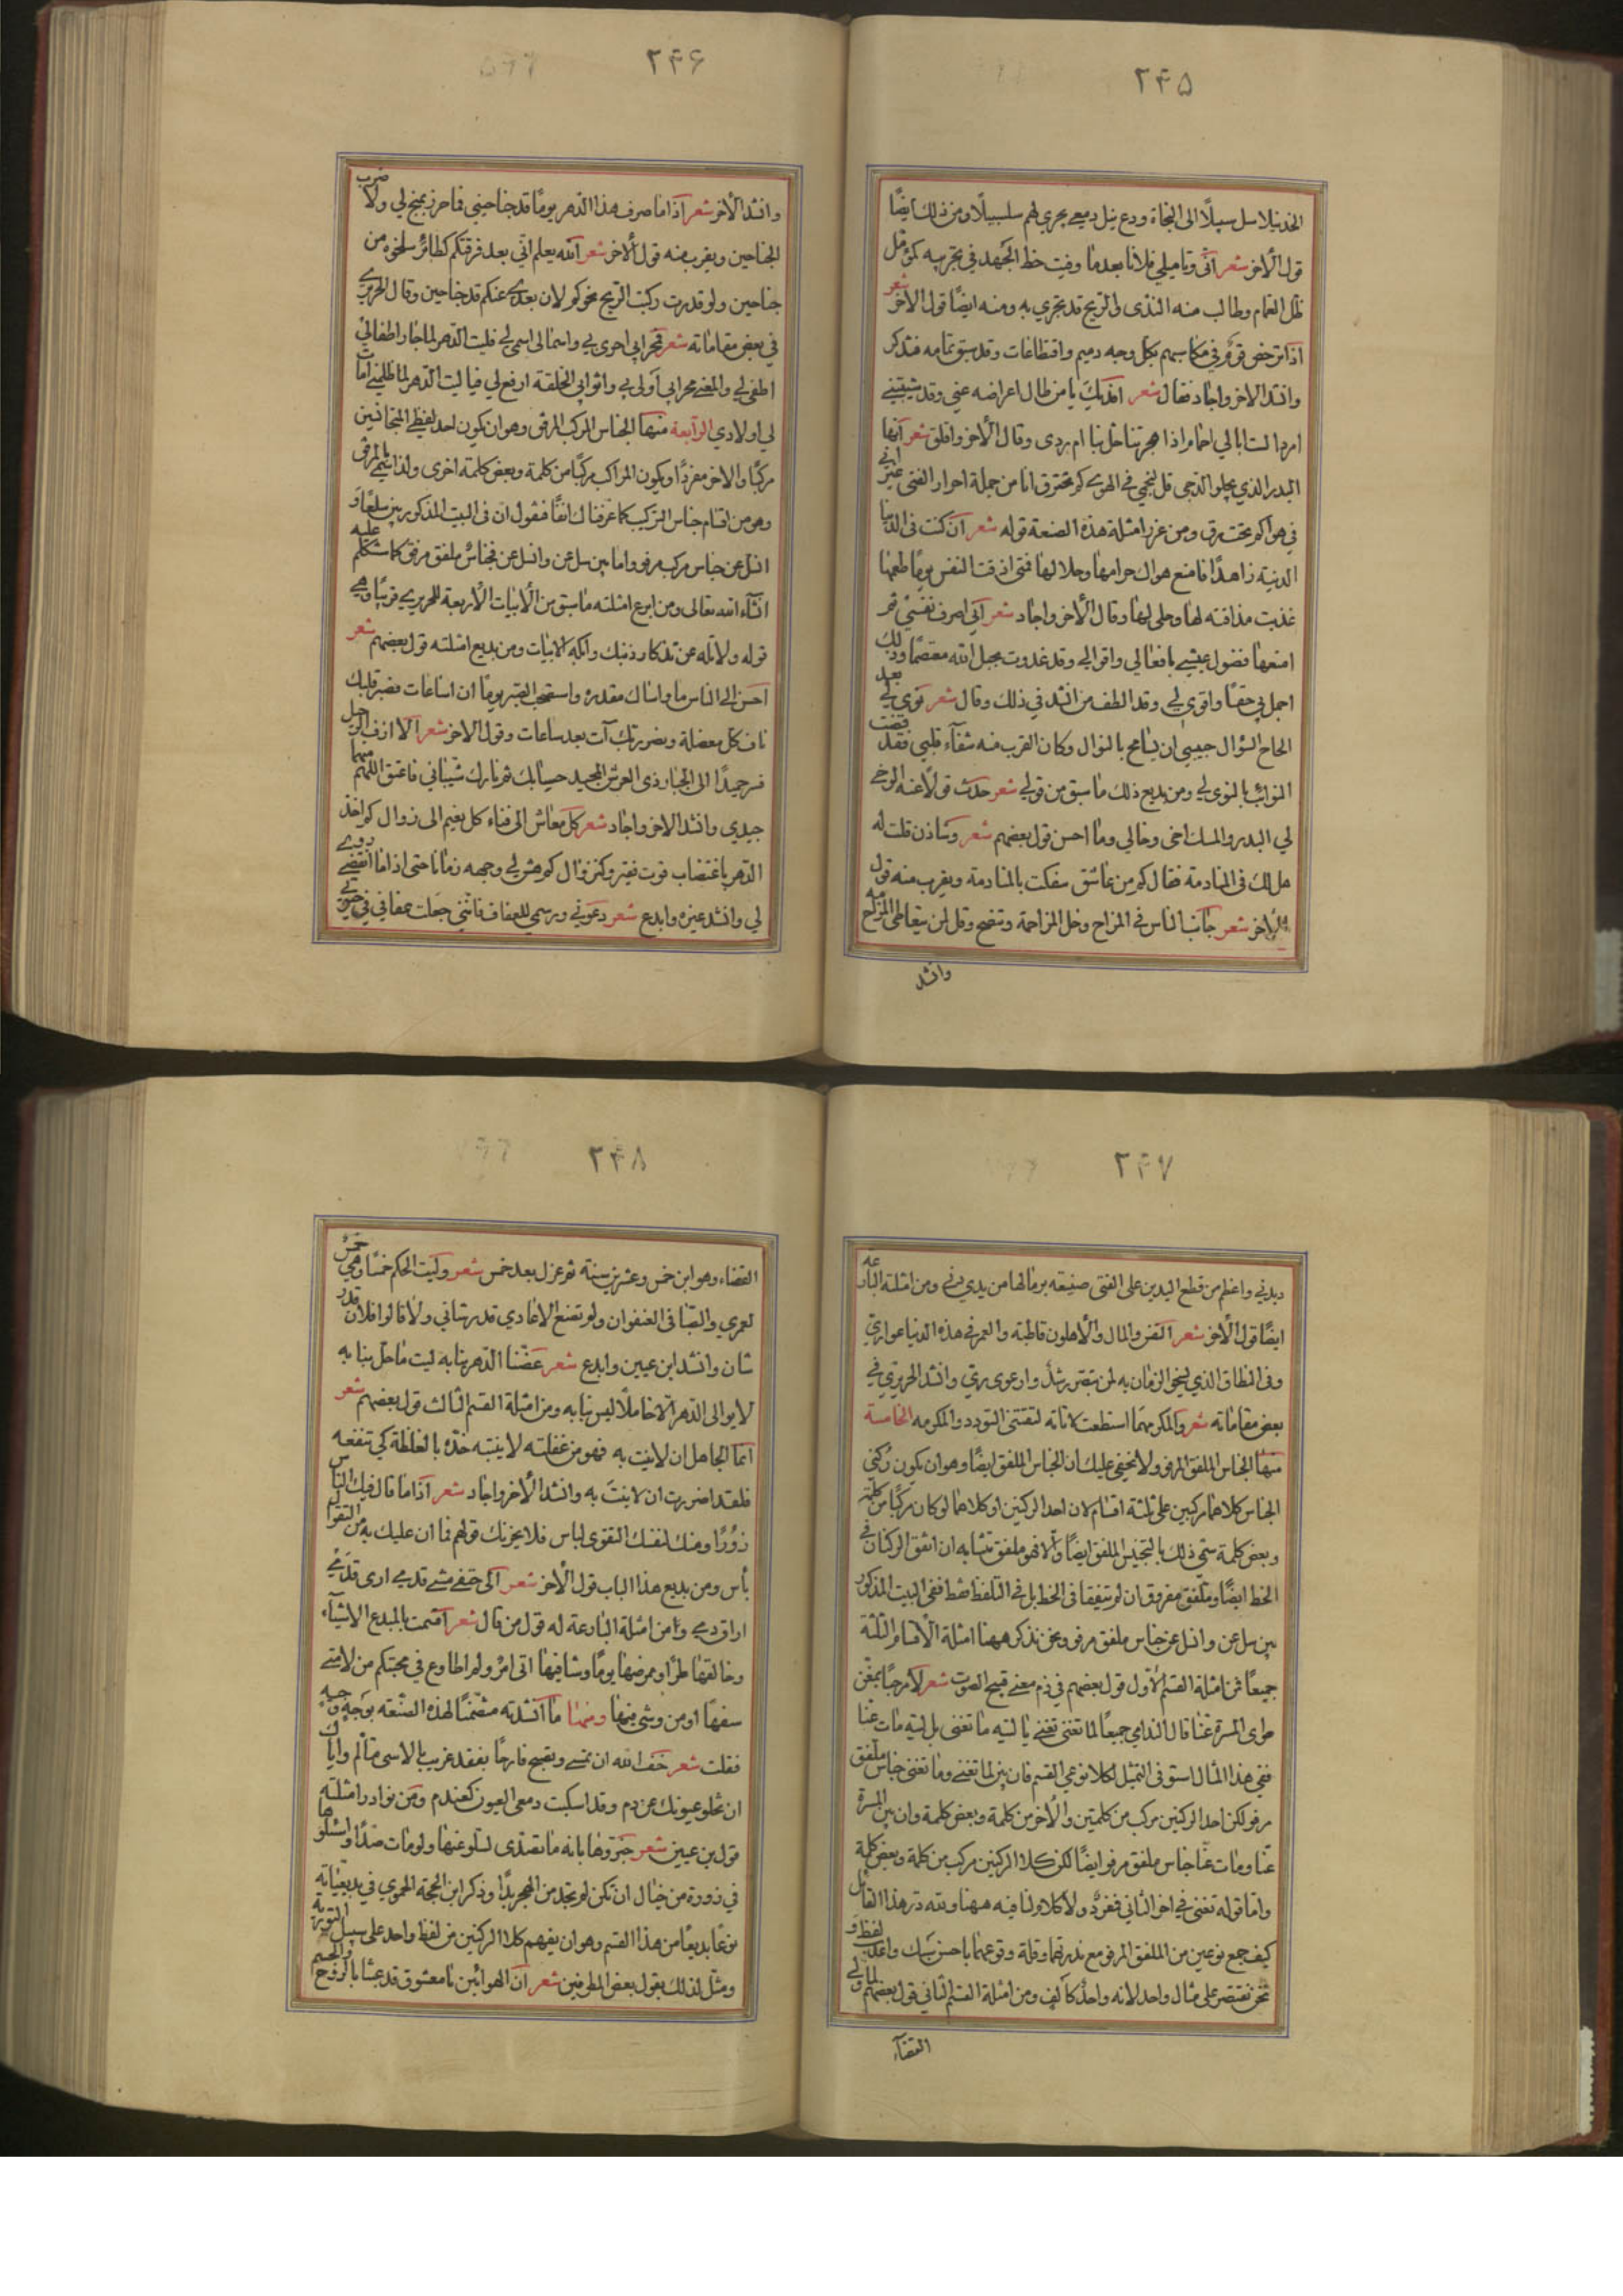 ٢٤۵
الخد نيلا سل سبيلًا الى النجاة ودع نيل دمعي يجري لهم سلسبيلا ومن ذلك ايضًا
قول الآخر شعر انّى وتاميلي فلانا بعدما وفيت حظ الجهد في تجريبه كمؤمّل
ظل الغمام وطالب منه الندى والريح قد تجري به ومنه ايضًا قول الآخر شعر
بكل وجه دميم واقتطاعات وقد سبق تمامه فتذكر
وانشد الآخر واجاد فقال شعر افديك يا من طال اعراضه عني وقد شيّبني
امردا لست ابالي اذا هجرتنا حل بنا ام ردى وقال الآخر وافلق شعر ايّها
البدر الذي يجلو الدجى قل لنجمي في الهوى كم تحترق انا من جملة احرار الفتى غير اني
في هواكم تحت رق ومن غرر امثلة هذه الصنعة قوله شعر ان كنت في الدنيا
الدنية زاهدًا فامنع هواك حرامها وحلالها فمتى اذقت النفس يومًا طعمها
غذيت مذاقته لها وحلى لها وقال الآخر واجاد شعر اني اصرف نفسي ثم
امنعها فضول عيشي بافعالي واقوالي وقد غدوت بحبل الله معتصمًا وذلك
اجمل بي حقًا واقوى لي وقد الطف من انشد في ذلك وقال شعر قوي لي بعد
الحاح السؤال حبيبي ان يسامح بالنوال وكان القرب منه شفاء قلبي فقد قضت
النوائب بالنوى لي ومن بديع ذلك ما سبق من قولي شعر حدث قولا عنه
لي البدر والمسك اخى وخالي وما احسن قول بعضهم شعر وشاذن قلت له
هل لك في المنادمة فقال كم من عاشق سفكت بالمنا دمه ويقرب منه قول
الآخر شعر جانب الناس في المزاح وخل المزاحمة وتنصح وقل لمن يتعاطى المزاح مه
وانشد
٢٤۶
وانشد الآخر شعر اذا ما صرف هذا الدهر يومًا قد جناحيني فما حرز بمنج لي ولا ضرب
الجناحين ويقرب منه قول الآخر شعر الله يعلم اني بعد فرقتكم كطائر سلخوه من
جناحين ولو قدرت ركبت الريح نحوكم لان بعدي عنكم قد جناحين وقال الحريري
في بعض مقاماته شعر فمحرابي احرى بي واسمالي اسمى لي فليت الدهر لما جار اطفا لي
اطفالي والمغني محرابي اولى بي واثوابي الخلقة ارفع لي فياليت الدهر لما ظلمني امات
لي اولادي الرابعة منها الجناس المركب المرفو وهو ان يكون احد لفظي المتجانسين
مركبًا والآخر مفردًا ويكون المركب مركبًا من كلمة وبعض كلمة اخرى ولذا يسمى بالمرفو
وهو من اقسام جناس التركيب كما عرفناك انفًا فنقول ان في البيت المذكور بين سلعًا و
انسل عن جناس مركب مرفو واما بين سل عن وانسل عن فجناس ملفق مرفو كما ستكلم عليه
انشاء الله تعالى ومن ابرع امثلته ما سبق من الأبيات الأربعة للحريري قريبًا وهي
قوله ولا تله عن تذكار ذنبك وابكه الأبيات ومن بديع امثلته قول بعضهم شعر
احسن الى الناس ما واساك مقدره واستصحب الصبر يومًا ان اساعات فصبر قلبك
ناف كل معضلة وبضورتك آت بعد ساعات وقول الآخر شعر الا ازف الرحيل
فسر حميدًا الى الجبار ذي العرش المجيد حسابك ثم نارك شيباني فاعتق اللهم منهما
جيدي وانشد الآخر واجاد شعر كل معاش الى فناء كل نعيم الى زوال كم اخذ
الدهر باغتصاب قوت فقير وكنز وال كم هش لي وجهه زمانا حتى اذا ما انقضى
لي وانشد غيره وابدع شعر دعوني ورسمي للعفاف فانني جعلت عفافي في
٢٤٧
ديدني واعظم من قطع اليدين على الفتى صنيعة برّ نالها من يدي دني ومن امثلته البارعة
ايضًا قول الآخر شعر النفس والمال والأهلون قاطبة والعمر في هذه الدنيا عواري
بعض مقاماته شعر والمكر مهما استطعت لا تاته لتقتني السودد والمكرمه الخامسة
منها الجناس الملفق المرفو ولا يخفى عليك ان الجناس الملفق ايضًا وهو ان يكون ركني
الجناس كلاهما مركبين على ثلثة اقسام لان احد الركنين او كلاهما لو كان مركبًا من كلمة
وبعض كلمة سمّي ذلك بالتجنيس الملفق ايضًا والا فهو ملفق متشابه ان اتفق الركنان في
الخط ايضًا وملفق مفروق ان لم يتفقا في الخط بل في التلفظ فقط ففي البيت المذكور
بين سل عن وانسل عن جناس ملفق مرفو ونحن نذكر ههنا امثلة الأقسام الثلثة
جميعًا فمن امثلة القسم الأول قول بعضهم في ذم مغني قبيح الصوت شعر لا مرحبًا بمغن
طوى المسرة عنا قال الندامى جميعًا لما تغنى تغني يا ليته ما تغنى بل ليته مات عنا
ففي هذا المثال استوفى التمثيل لكلا نوعي القسم فان بين لما تغنى وما تغنى جناس ملفق
مرفو لكن احد الركنين مركب من كلمتين والآخر من كلمة وبعض كلمة وان بين المسرة
عنا ومات عنا جناس ملفق مرفو ايضًا لكن كلا الركنين مركب من كلمة وبعض كلمة
واما قوله تغنى في اخر الثاني فمفرد ولا كلام لنا فيه ههنا ولله در هذا القائل
كيف جمع نوعين من الملفق المرفو مع ندرتهما وقلة وقوعهما باحسن سبك واعذب لفظ و
نحن نقتصر على مثال واحد لانه واحد كالف ومن امثلة القسم الثاني قول بعضهم لما ولي
القضاء
٢٤٨
القضاء وهو ابن خمس وعشرين سنة ثم عزل بعد خمس شعر وليت الحكم خمسًا وهي خمس
لعمري والصبا في العنفوان ولم تضع الأعادي قدر شاني ولا قالوا فلان قدر
شان وانشد ابن عيين وابدع شعر عضنا الدهر بنابه ليت ما حل بنا به
لا يوالي الدهر الا خاملًا ليس بنا به ومن امثلة القسم الثالث قول بعضهم شعر
فلقد اضررت ان لا ينت به وانشد الآخر واجاد شعر اذا ما قال فيك الناس
زورًا ومنك لنفسك التقوى لباس فلا يحزنك قولهم فما ان عليك به من التقوال
بأس ومن بديع هذا الباب قول الآخر شعر الى حتفي مشى قدمي ارى قدمي
اراق دمي ومن امثلة البارعة له قول من قال شعر اقسمت بالمبدع الاشياء
وخالقها طرًا وممرضها يومًا وشافيها اني امرؤ لم اطاوع في محبتكم من لامني
سفهًا او من وشى فيها ومنها ما انشدته متضمنًا لهذه الصنعة بوجه وجيه
فقلت شعر خف الله ان تمسي وتصبح فارحًا بفقد غريب بالاسى متألم واياك
ان تخلو عيونك عن دم وقد اسكبت دمعي العيون كعندم ومن نوادر امثلته
قول بن عيين شعر خبروها بانه ما تصدى لسلو عنها ولو مات صدًا واسلوها
في زورة من خيال ان تكن لم تجد من الهجر بدًا وذكر ابن الحجة الحموي في بديعياته
نوعًا بديعًا من هذا القسم وهو ان يفهم كلا الركنين من لفظ واحد على سبيل التورية
ومثل لذلك بقول بعض المطرفين شعر ان الهوائين يا معشوق قد عبثا بالروح والجسم